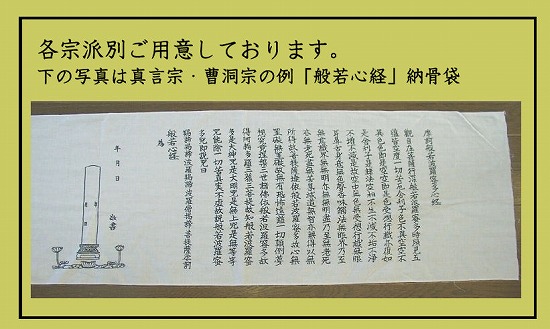 各宗派別ご用意しております。
下の写真は真言宗・曹洞宗の例「般若心経」納骨袋
摩訶般若波羅蜜多心経
観自在菩薩行深般若波羅蜜多時照見五
蘊皆空度一切苦厄舎利子色不異空空不
異色色即是空空即是色受想行識亦復如
是舎利子是諸法空相不生不滅不垢不浄
不増不減是故空中無色無受想行識無眼
耳鼻舌身意無色声香味触法無眼界乃至
無意識界無無明亦無無明尽乃至無老死
亦無老死尽無苦集滅道無智亦無得以無
所得故菩提薩埵依般若波羅蜜多故心無
罣礙無罣礙故無有恐怖遠離一切顛倒夢
想究竟涅槃三世諸仏依般若波羅蜜多故
得阿耨多羅三藐三菩提故知般若波羅蜜
多是大神呪是大明呪是無上呪是無等等
呪能除一切苦真実不虚故説般若波羅蜜
多呪即説呪曰
羯諦羯諦波羅羯諦波羅僧羯諦菩提薩婆訶
般若心経
為
年月日